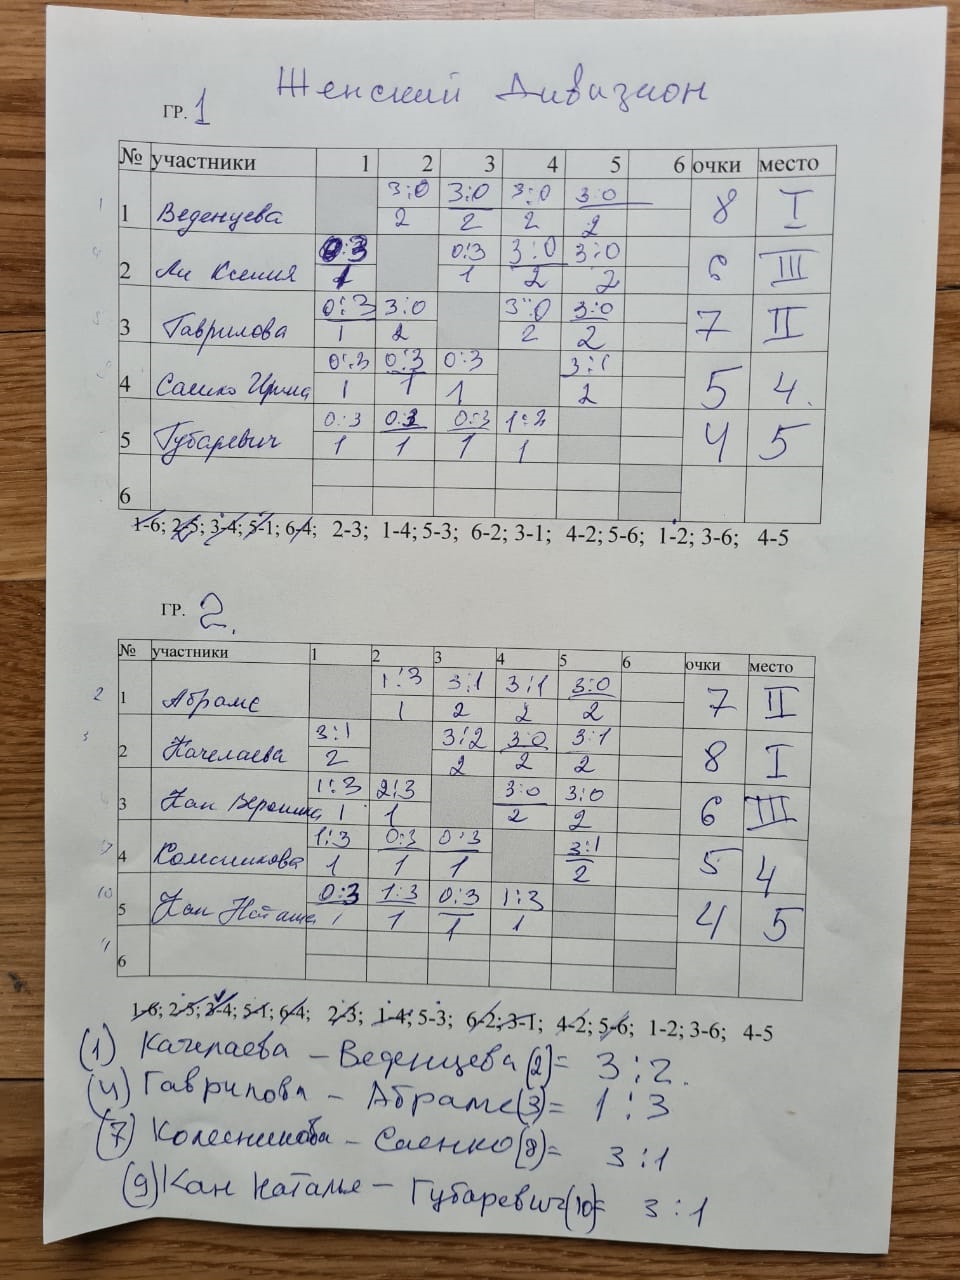 Женский Дивизион
ГР. 1
№ участники 1 2 3 4 5 6 очки место
1 Веденцева 3:0 3:0 3:0 3:0 8 I
2 2 2 2
2 Ли Ксения 0:3 0:3 3:0 3:0 6 III
1 1 2 2
3 Гаврилова 0:3 3:0 3:0 3:0 7 II
1 2 2 2
4 Саенко Ирина 0:3 0:3 0:3 3:1 5 4.
1 1 1 2
5 Губаревич 0:3 0:3 0:3 4 5
1 1 1 1
6
1-6; 2-5; 3-4; 5-1; 6-4; 2-3; 1-4; 5-3; 6-2; 3-1; 4-2; 5-6; 1-2; 3-6; 4-5
ГР. 2.
№ участники 1 2 3 4 5 6 очки место
1 Абрамс 1:3 3:1 3:1 3:0 7 II
1 2 2 2
2 Качелаева 3:1 3:2 3:0 3:1 8 I
2 2 2 2
3 Кан Вероника 1:3 2:3 3:0 3:0 6 III
1 1 2 2
4 Колесникова 1:3 0:3 0:3 3:1 5 4
1 1 1 2
5 Кан Наташа 0:3 1:3 0:3 1:3 4 5
1 1 1 1
6
1-6; 2-5; 3-4; 5-1; 6-4; 2-3; 1-4; 5-3; 6-2; 3-1; 4-2; 5-6; 1-2; 3-6; 4-5
(1) Качелаева – Веденцева (2) = 3:2.
(4) Гаврилова – Абрамс (3) = 1:3
(7) Колесникова – Саенко (8) = 3:1
(9) Кан Наталья – Губаревич (10) = 3:1